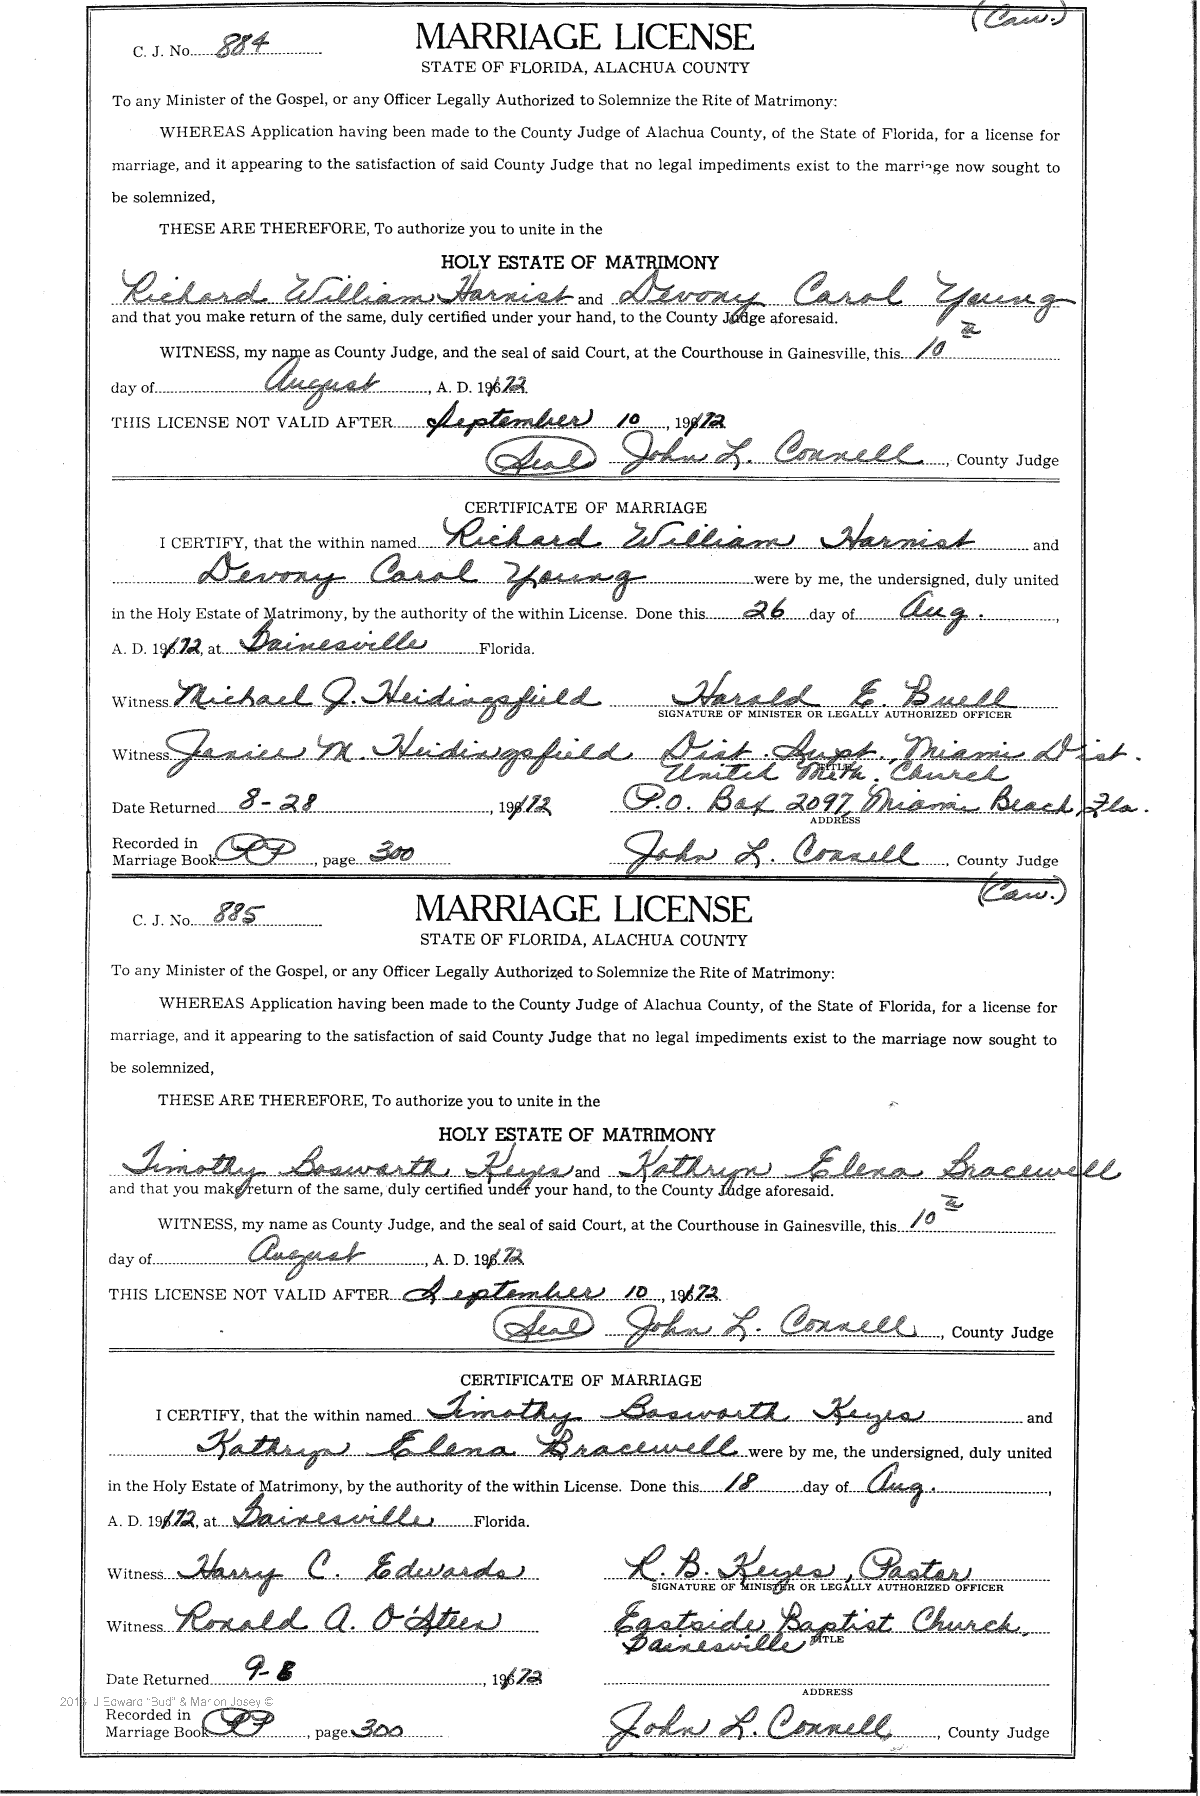 (Cau.)
C. J. No. 884
MARRIAGE LICENSE
STATE OF FLORIDA, ALACHUA COUNTY
To any Minister of the Gospel, or any Officer Legally Authorized to Solemnize the Rite of Matrimony:
WHEREAS Application having been made to the County Judge of Alachua County, of the State of Florida, for a license for
marriage, and it appearing to the satisfaction of said County Judge that no legal impediments exist to the marriage now sought to
be solemnized,
THESE ARE THEREFORE, To authorize you to unite in the
HOLY ESTATE OF MATRIMONY
Richard William Harnist and Devony Carol Young
and that you make return of the same, duly certified under your hand, to the County Judge aforesaid.
WITNESS, my name as County Judge, and the seal of said Court, at the Courthouse in Gainesville, this 10th
day of August, A. D. 1972
THIS LICENSE NOT VALID AFTER September 10, 1972
(Seal) John L. Connell, County Judge
CERTIFICATE OF MARRIAGE
I CERTIFY, that the within named Richard William Harnist and
Devony Carol Young were by me, the undersigned, duly united
in the Holy Estate of Matrimony, by the authority of the within License. Done this 26 day of Aug.,
A. D. 1972, at Gainesville Florida.
Witness Michael J. Heidingsfield Harold E. Buell
SIGNATURE OF MINISTER OR LEGALLY AUTHORIZED OFFICER
Witness Janice M. Heidingsfield Dist. Supt., Miami Dist.
United Meth. Church
TITLE
Date Returned 8-28, 1972 P.O. Box 2097 Miami Beach, Fla.
ADDRESS
Recorded in
Marriage Book PP, page 300 John L. Connell, County Judge
(Cau.)
C. J. No. 885
MARRIAGE LICENSE
STATE OF FLORIDA, ALACHUA COUNTY
To any Minister of the Gospel, or any Officer Legally Authorized to Solemnize the Rite of Matrimony:
WHEREAS Application having been made to the County Judge of Alachua County, of the State of Florida, for a license for
marriage, and it appearing to the satisfaction of said County Judge that no legal impediments exist to the marriage now sought to
be solemnized,
THESE ARE THEREFORE, To authorize you to unite in the
HOLY ESTATE OF MATRIMONY
Timothy Bosworth Keyes and Kathryn Elena Bracewell
and that you make return of the same, duly certified under your hand, to the County Judge aforesaid.
WITNESS, my name as County Judge, and the seal of said Court, at the Courthouse in Gainesville, this 10th
day of August, A. D. 1972
THIS LICENSE NOT VALID AFTER September 10, 1972
(Seal) John L. Connell, County Judge
CERTIFICATE OF MARRIAGE
I CERTIFY, that the within named Timothy Bosworth Keyes and
Kathryn Elena Bracewell were by me, the undersigned, duly united
in the Holy Estate of Matrimony, by the authority of the within License. Done this 18 day of Aug.,
A. D. 1972, at Gainesville Florida.
Witness Harry C. Edwards R. B. Keyes, Pastor
SIGNATURE OF MINISTER OR LEGALLY AUTHORIZED OFFICER
Witness Ronald A. O'Steen Eastside Baptist Church,
Gainesville TITLE
Date Returned 9-8, 1972
ADDRESS
J Edward "Bud" & Marion Josey ©
Recorded in
Marriage Book PP, page 300 John L. Connell, County Judge